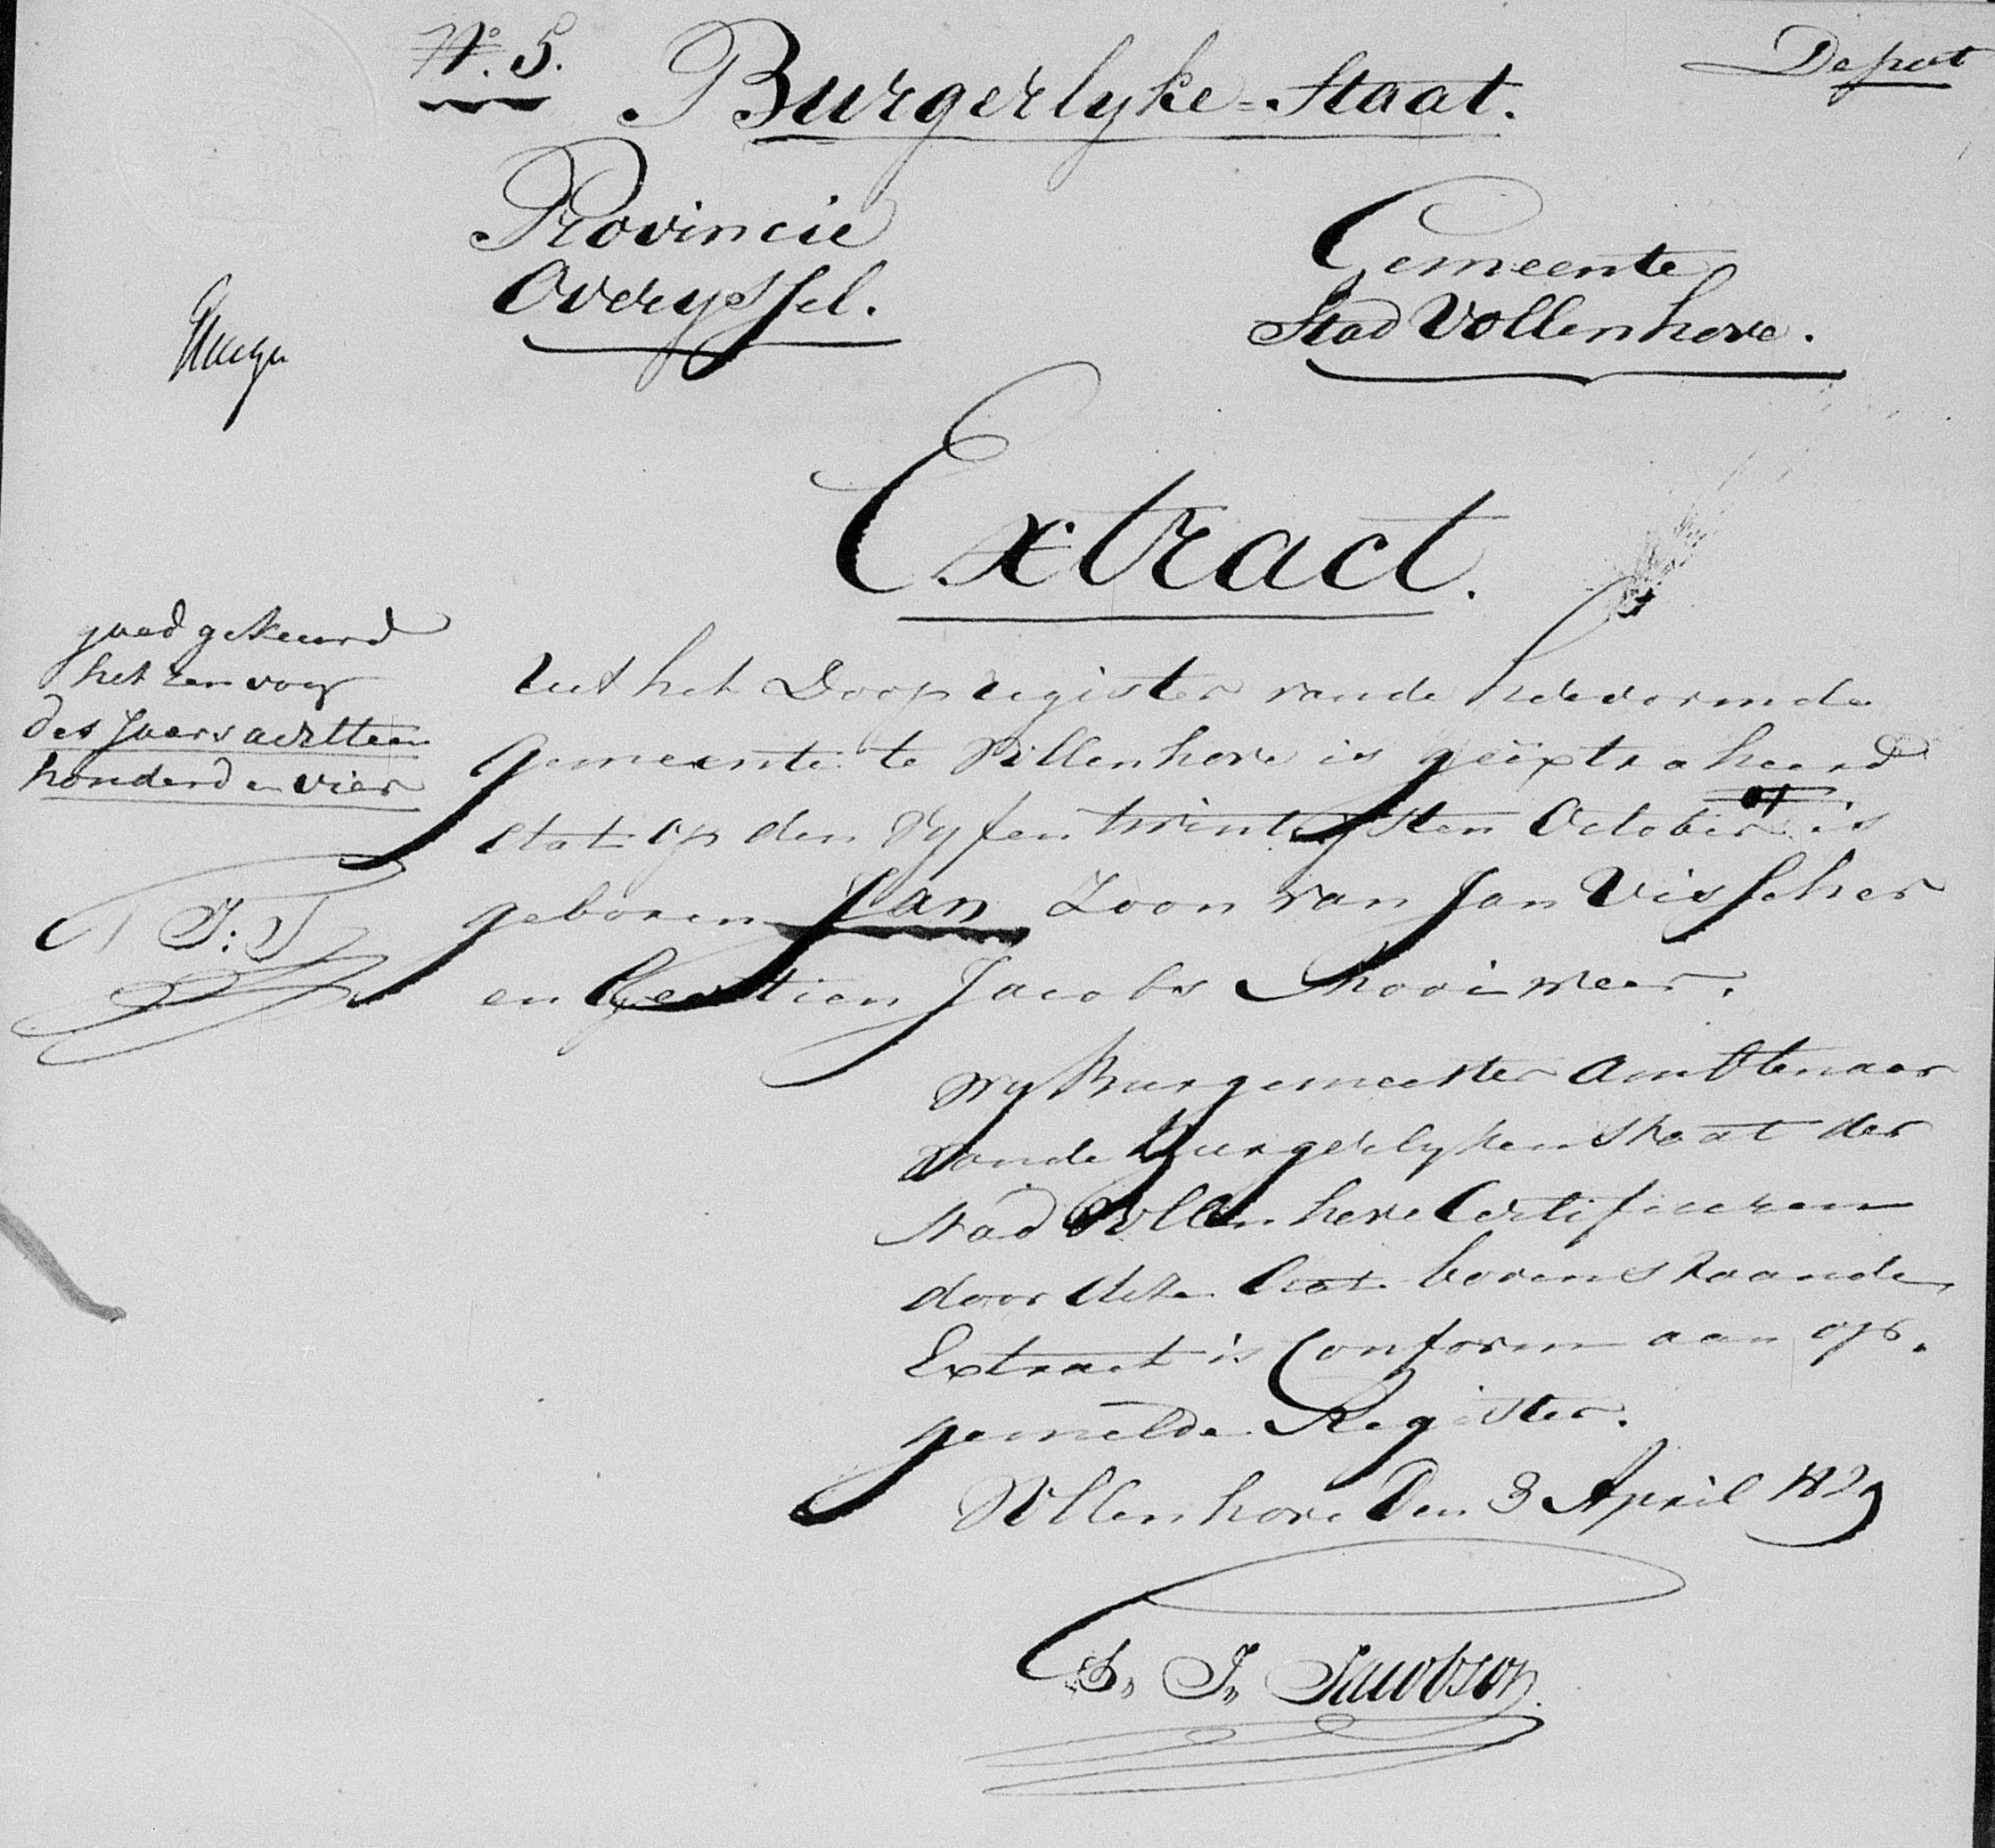 N.o 5.
Burgerlyke-Staat.
Provincie
Overyssel.
Gemeente
Stad Vollenhove.
Extract.
goed gekeurd
het renvooy
des Jaars achttien
honderd en vier
J: J
Uut het Doop register van de hervormde
gemeente te Vollenhove is geëxtraheerd
dat op den vyfentwintigsten October is
geboren Jan Zoon van Jan Visscher
en Geertien Jacobs Mooiweer.
Wy Burgemeester Amttenaar
van de Burgerlyken Staat der
stad Vollenhove Certificeren
door deze dat bovenstaande
Extract is Conform aan op.
gemelde Register.
Vollenhove Den 3 April 1829
S. J. Jacobson